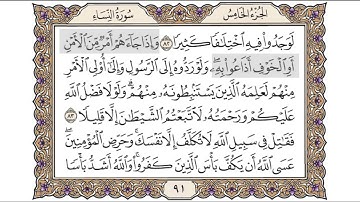 الجزء الخامس
سورة النساء
لَوَجَدُوا۟ فِيهِ ٱخْتِلَٰفًا كَثِيرًا ٨٢ وَإِذَا جَآءَهُمْ أَمْرٌ مِّنَ ٱلْأَمْنِ
أَوِ ٱلْخَوْفِ أَذَاعُوا۟ بِهِۦ ۖ وَلَوْ رَدُّوهُ إِلَى ٱلرَّسُولِ وَإِلَىٰٓ أُو۟لِى ٱلْأَمْرِ
مِنْهُمْ لَعَلِمَهُ ٱلَّذِينَ يَسْتَنۢبِطُونَهُۥ مِنْهُمْ ۗ وَلَوْلَا فَضْلُ ٱللَّهِ
عَلَيْكُمْ وَرَحْمَتُهُۥ لَٱتَّبَعْتُمُ ٱلشَّيْطَٰنَ إِلَّا قَلِيلًا ٨٣
فَقَٰتِلْ فِى سَبِيلِ ٱللَّهِ لَا تُكَلَّفُ إِلَّا نَفْسَكَ ۚ وَحَرِّضِ ٱلْمُؤْمِنِينَ ۖ
عَسَى ٱللَّهُ أَن يَكُفَّ بَأْسَ ٱلَّذِينَ كَفَرُوا۟ ۚ وَٱللَّهُ أَشَدُّ بَأْسًا
٩١